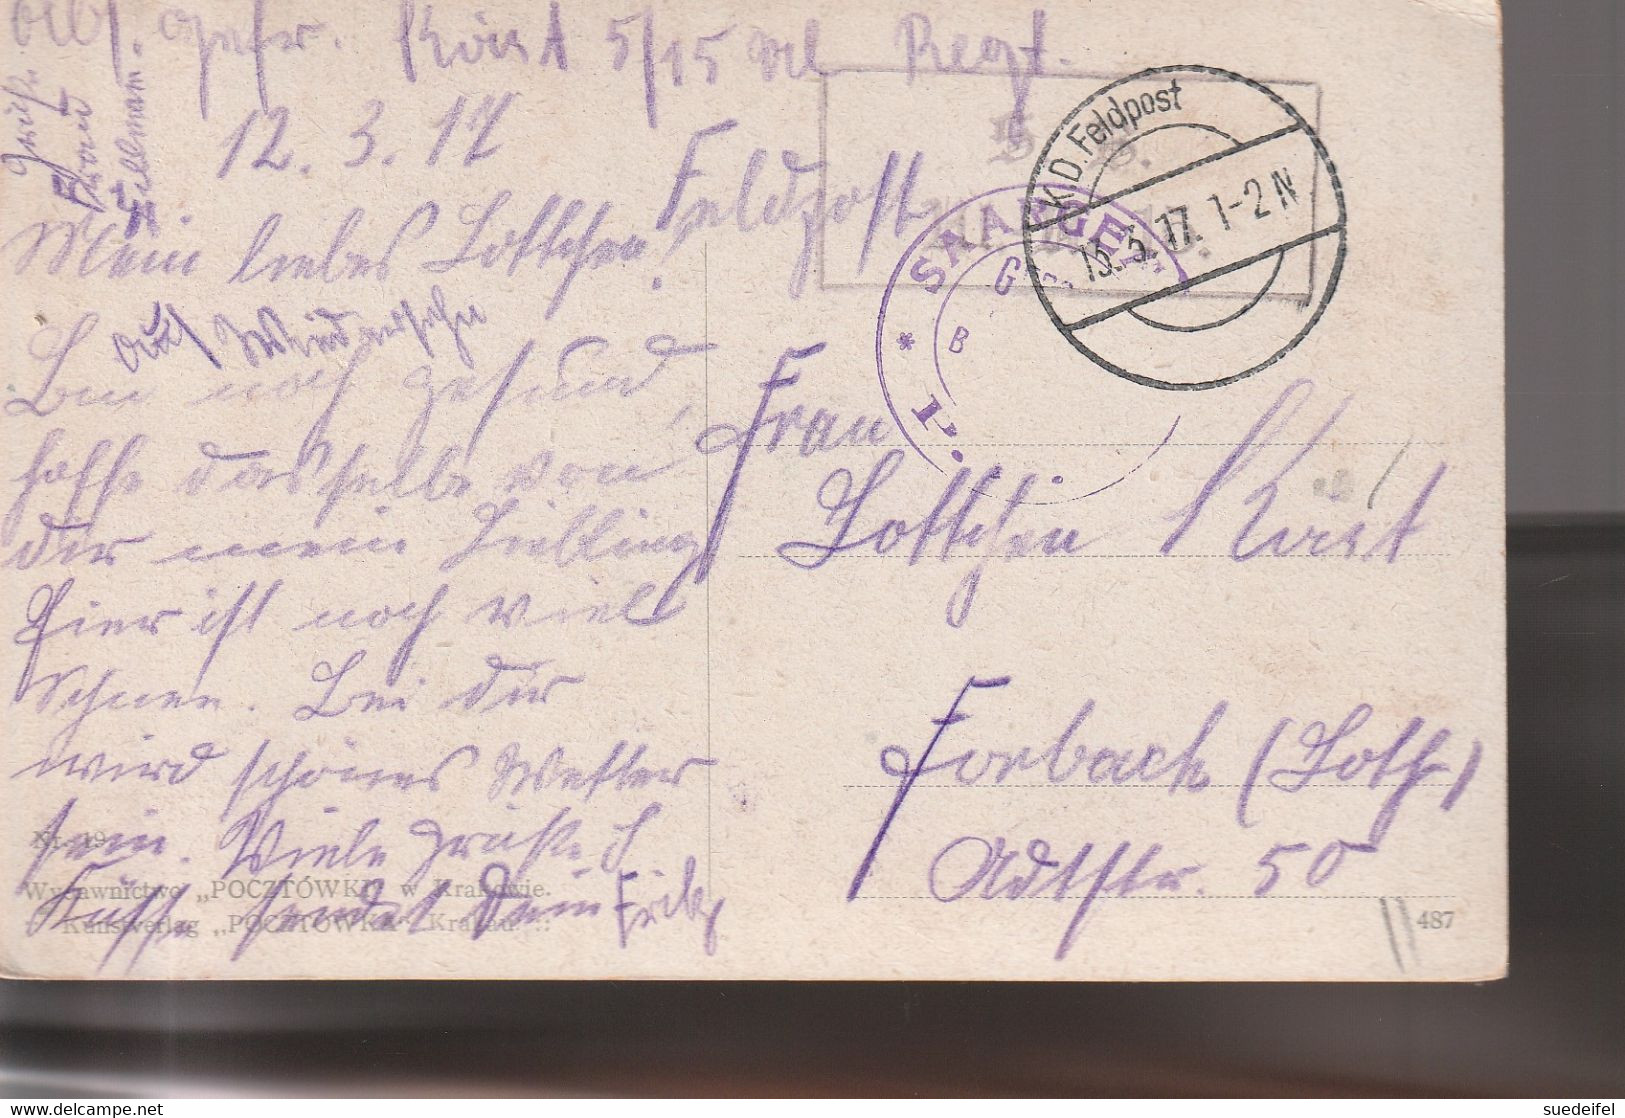 Abs. Gefr. Körst 5/15 Regt.
12.3.17
Feldpost
Mein liebes Lottchen!
Auf Wiedersehn
Bin noch gesund,
hoffe dasselbe von
dir mein Liebling
Hier ist noch viel
Schnee. Bei dir
wird schönes Wetter
sein. Viele Grüße &
Küsse sendet Dein Fritz
Grüße
Frau
Frau
Lottchen Körst
Forbach (Loth)
Adtstr. 50
K.D. Feldpost
13.3.17. 1-2 N
* SAARGE
B
Nr. 19
Wydawnictwo „POCZTÓWKI" w Krakowie.
Kunstverlag „POCZTÓWKA" Krakau
487
suedeifel